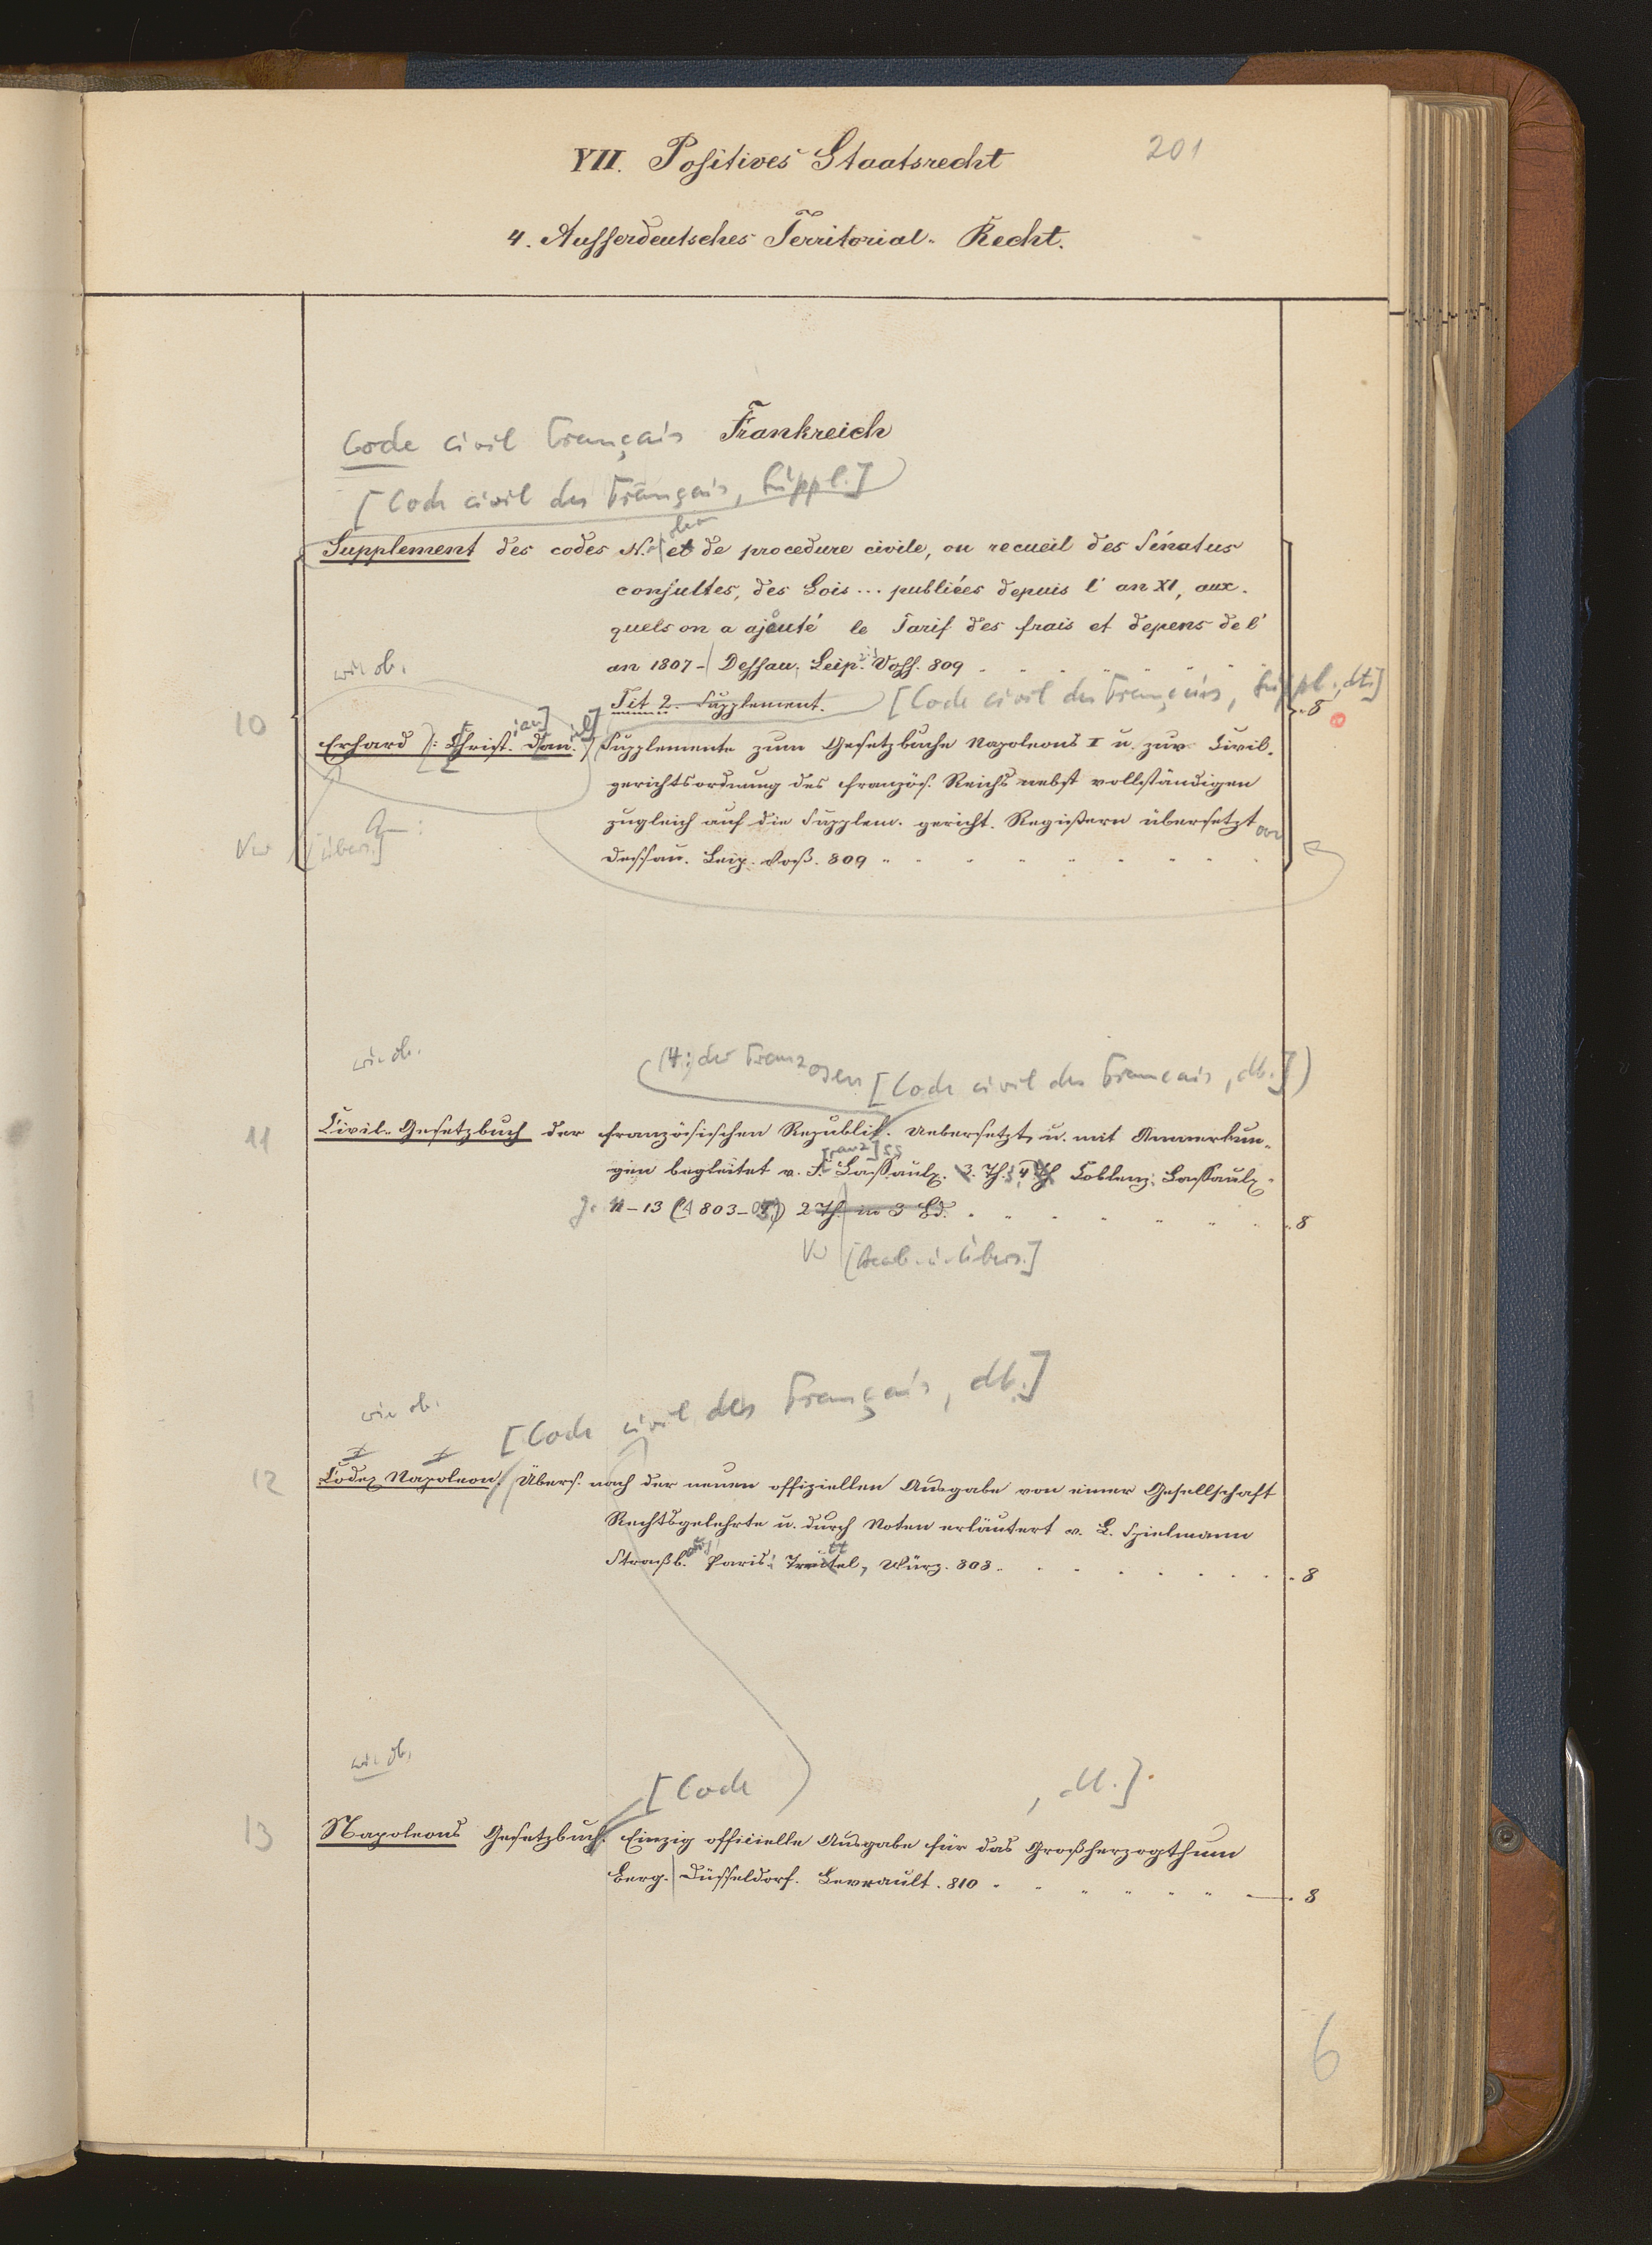 VII. Positives Staatsrecht 201
4. Ausserdeutsches Territorial-Recht.
Code civil français Frankreich
[Code civil des Français, Suppl.]
Supplement des codes N. et de procedure civile, ou recueil des Sénatus
consultes, des Lois... publiées depuis l'an XI, aux-
quels on a ajouté le Tarif des frais et depens de l'
an 1807 - Dessau. Leip. Voss. 809
wie ob.
Tit 2. Supplement. [Code civil des Français, Suppl., dt.]
8
10
Erhard /: Christ.ian] Dan.iel] Supplemente zum Gesetzbuche Napoleons I u. zur Civil-
gerichtsordnung des französ. Reichs nebst vollständigen
zugleich auf die Supplem. gericht. Registern übersetzt von
Vw [Übers.]
Dessau. Leip. Voß. 809
wie ob.
der Franzosen [Code civil des Francais, dt.]
11
Civil-Gesetzbuch der französischen Republik. Uebersetzt u. mit Anmerkun-
gen begleitet v. F. Lassaulx. 3. Th. 4 Th Coblenz. Lassaulx.
J. 11-13 (1803-05) 2 Th. in 3 Bd. 8
Vw [Bearb. u. Übers.]
wie ob.
[Code civil des Français, dt.]
12
Codex Napoleon. Übers. nach der neuen offiziellen Ausgabe von einer Gesellschaft
Rechtsgelehrte u. durch Noten erläutert v. L. Spielmann
Straßb. Paris: Treuttel, Würz. 808. 8
wie ob.
[Code , dt.]
13
Napoleons Gesetzbuch. Einzig officielle Ausgabe für das Großherzogthum
Berg. Düsseldorf. Levrault. 810 8
6